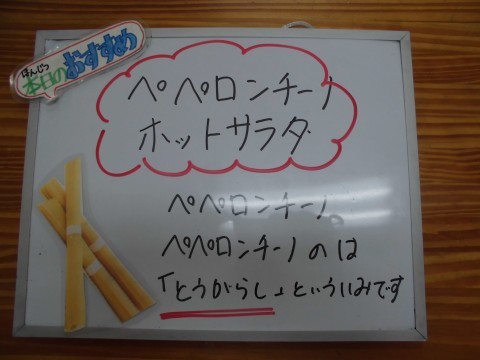 ほんじつ
本日のおすすめ
ペペロンチーノ
ホットサラダ
ペペロンチーノ。
ペペロンチーノのは
「とうがらし」といういみです